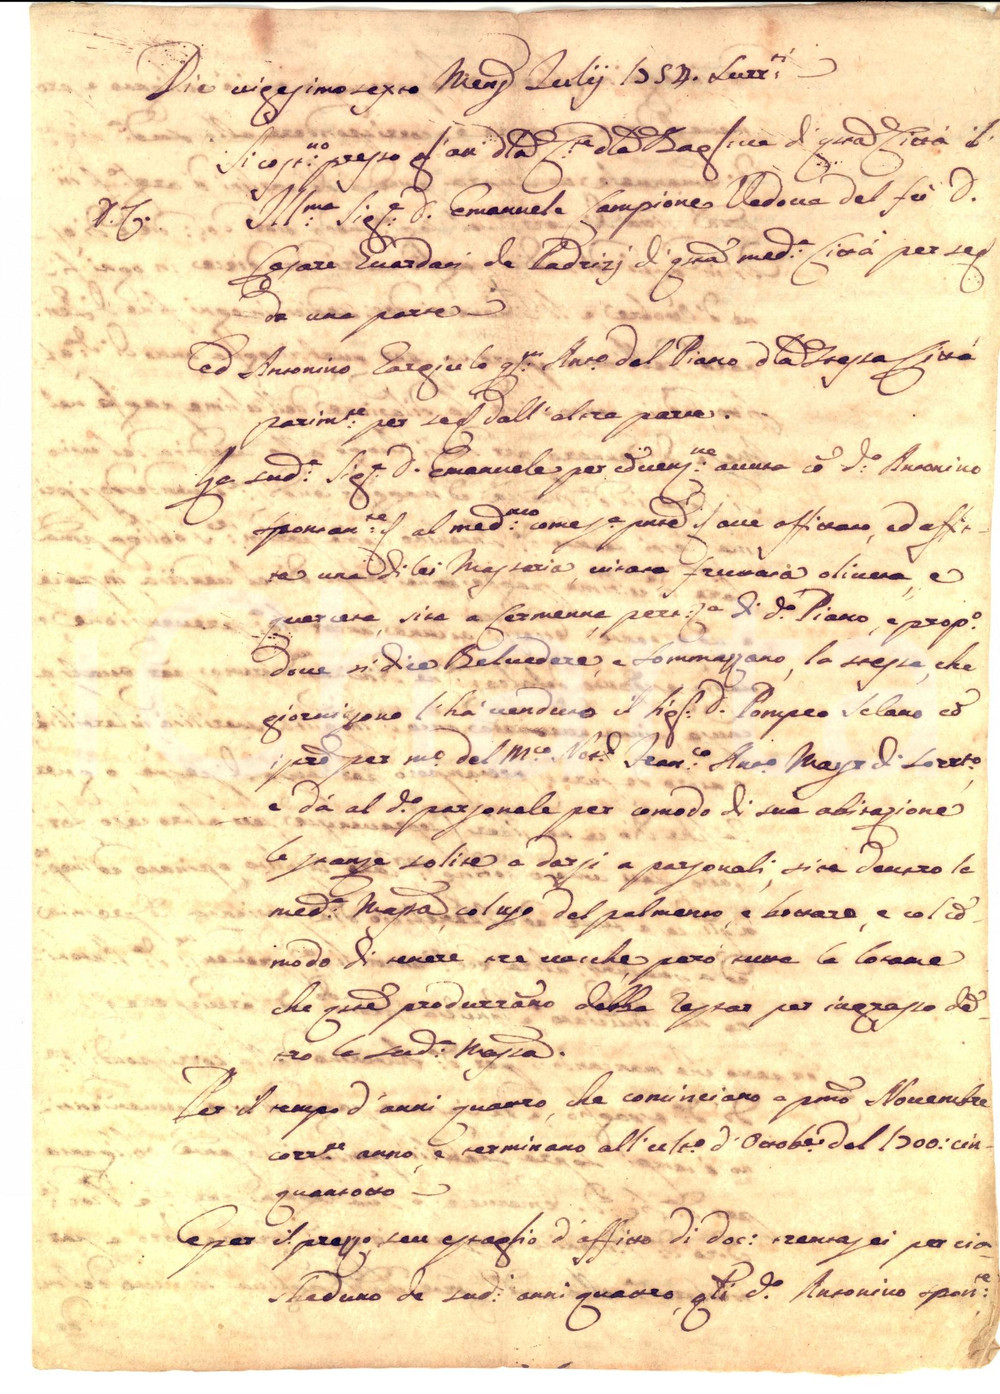 Die vigesimo sexto Mens Julij 1754. Surr.ti
presso gl'atti d'questa Città
Ill.ma Sig.ra D. Emanuele Campione Vedova del fù D.
Cesare Guardasi de Patrizj di questa med.a Città per se
da una parte
ed Antonino Gargiulo q.m Ant.o del Piano della stessa Città
parim.te per se dall'altra parte.
La sud.a Sig.ra D. Emanuele per avuta co d.o Antonino
spontan.te al med.mo come sopra ave affittato, ed affit-
ta una di lei Massaria vitata fruttata olivata, e
quercata, sita a Cermenna, pert.za di d.o Piano, e prop.o
dove si dice Belvedere, e Sommazzano, la stessa, che
giorni sono l'hà venduto il Sig.r D. Pompeo
per m.o del M.co Not.r Fran.co Ant.o di Sorr.to
e dà al d.o parzonale per comodo di sua abitazione
le stanze solite a darsi a parzonali, site dentro la
med.a Mass.a, col uso del palmento, e bottaro, e col co-
modo di tenere tre vacche, però tutto la lotame
che queste produrranno debba restar per ingrasso den-
tro la sud.a Mass.a.
Per il tempo d'anni quattro, che cominciano a p.mo Novembre
corr.te anno, e terminano all'ult.o d'Ottobre del 1700: cin-
quantotto
E per il prezzo, seu estaglio d'affitto di doc: trentasei per cia-
scheduno de sud.i anni quattro, q.li d.o Antonino spon.te